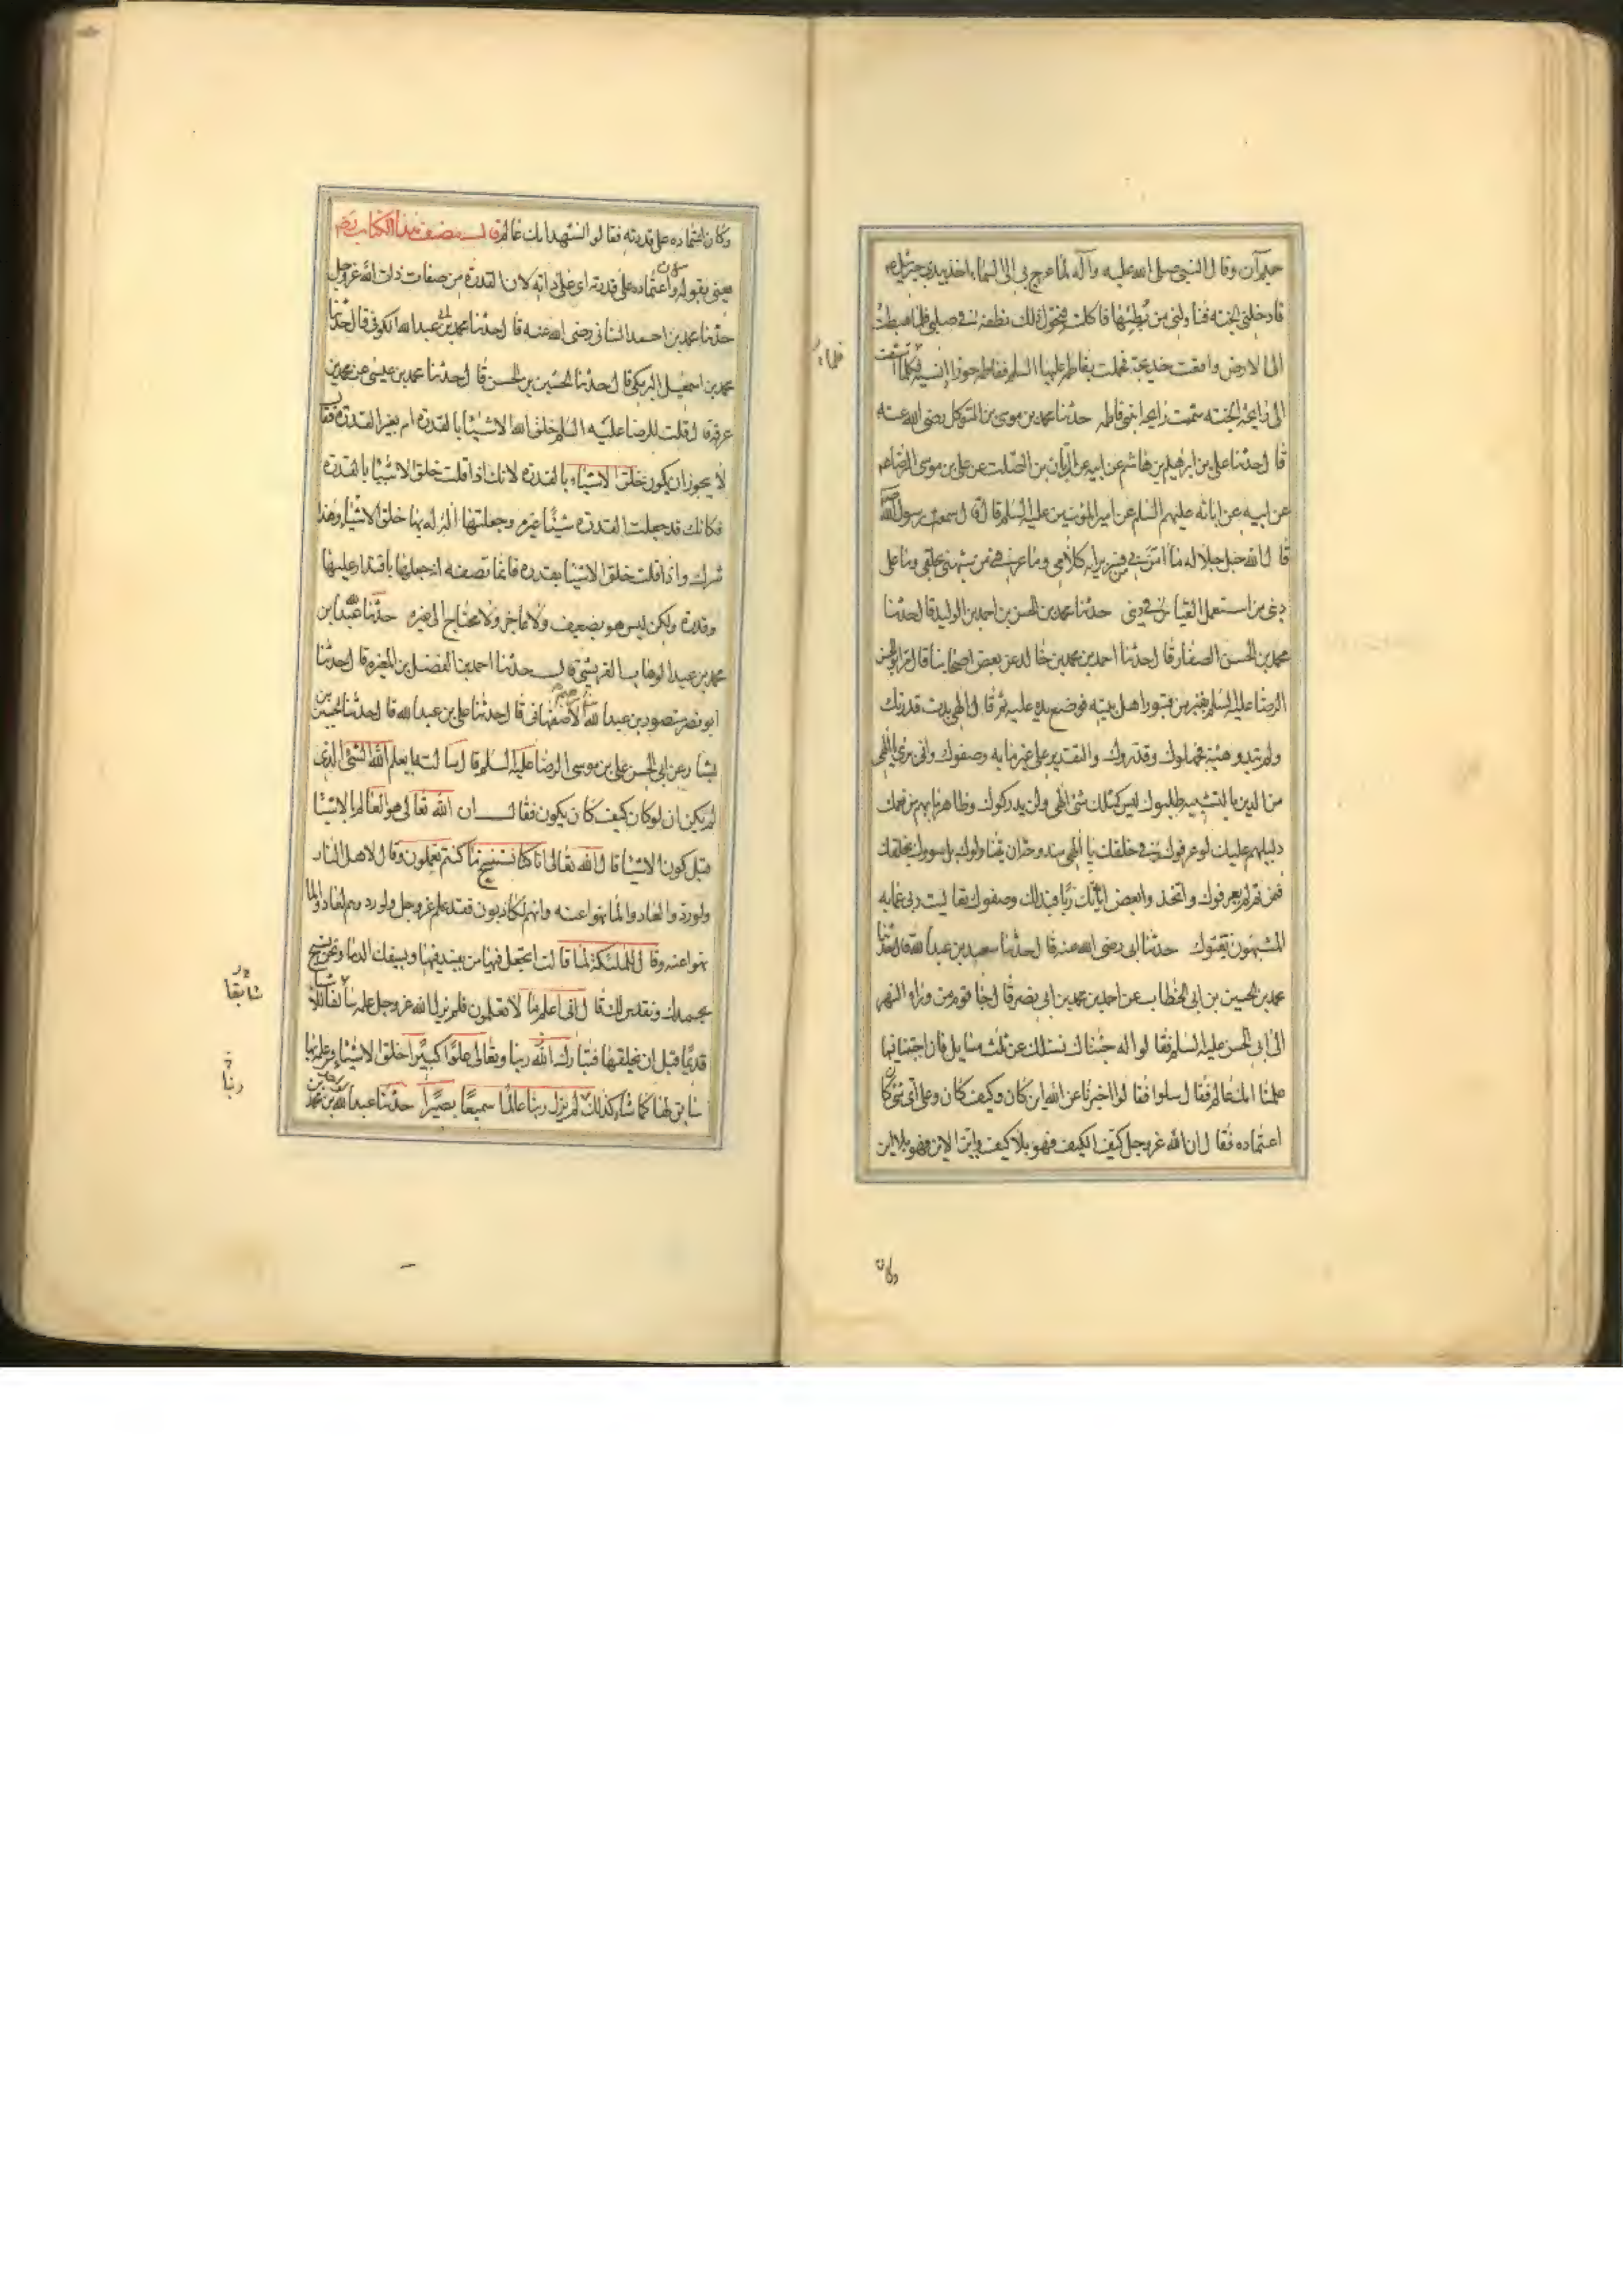 حميم آن وقال النبي صلى الله عليه وآله لما عرج بي الى السماء اخذ بيدي جبرئيل ع
فادخلني الجنة فناولني من رطبها فاكلت فتحول ذلك نطفة في صلبي فلما هبطت
الى الارض واقعت خديجة فحملت بفاطمة عليها السلم ففاطمة حورا انسية فكلما اشتقت
الى رايحة الجنة شممت رايحة ابنتي فاطمه حدثنا محمد بن موسى بن المتوكل رضى الله عنه
قال حدثنا على بن ابرهيم بن هاشم عن ابيه عن الريان بن الصلت عن على بن موسى الرضا ع
عن ابيه عن ابائه عليهم السلم عن امير المؤمنين عليه السلم قال قال سمعت رسول الله ص
قال الله جل جلاله ما امن بي من فسر برايه كلامي وما عرفني من شبهني بخلقي وما على
ديني من استعمل القياس في ديني حدثنا محمد بن الحسن بن احمد بن الوليد قال حدثنا
محمد بن الحسن الصفار قال حدثنا احمد بن محمد بن خالد عن بعض اصحابنا قال مر ابو الحسن
الرضا عليه السلم بقبر من قبور اهل بيته فوضع يده عليه ثم قال الهي بدت قدرتك
ولم تبد وهيئة فجهلوك وقدروك والتقدير على غير ما به وصفوك واني برئ يا الهي
من الذين بالتشبيه طلبوك ليس كمثلك شئ الهي ولن يدركوك وظاهر ما بهم من نعمك
دليلهم عليك لو عرفوك وفي خلقك يا الهي مندوحة ان يتناولوك بل سووك بخلقك
فمن ثم لم يعرفوك واتخذوا بعض اياتك ربا فبذلك وصفوك تعاليت ربي عما به
المشبهون نعتوك حدثنا ابى رضى الله عنه قال حدثنا سعد بن عبد الله قال حدثنا
محمد بن الحسين بن ابى الخطاب عن احمد بن محمد بن ابى نصر قال جا قوم من وراء النهر
الى ابى الحسن عليه السلم فقالوا له جئناك نسئلك عن ثلث مسايل فان اجبتنا فيها
علمنا انك عالم فقال سلوا فقالوا اخبرنا عن الله اين كان وكيف كان وعلى اى شئ كان
اعتماده فقال ان الله عز وجل كيف الكيف فهو بلا كيف واين الاين فهو بلا اين
وكان
وكان اعتماده على قدرته فقالوا نشهد انك عالم قال مصنف هذا الكتاب رضه
يعني بقوله وكان اعتماده على قدرته اى على ذاته لان القدرة من صفات ذات الله عز وجل
حدثنا محمد بن احمد السناني رضى الله عنه قال حدثنا محمد بن ابى عبد الله الكوفي قال حدثنا
محمد بن اسمعيل البرمكي قال حدثنا الحسين بن الحسن قال حدثنا محمد بن عيسى عن محمد بن
عرفة قال قلت للرضا عليه السلم خلق الله الاشيا بالقدرة ام بغير القدرة فقال
لا يجوز ان يكون خلق الاشياء بالقدرة لانك اذا قلت خلق الاشيا بالقدرة
فكانك قد جعلت القدرة شيئا غيره وجعلتها الة له بها خلق الاشياء وهذا
شرك واذا قلت خلق الاشيا بقدرة فانما تصفه انه جعلها باقتدار عليها
وقدرة ولكن ليس هو بضعيف ولا عاجز ولا محتاج الى غيره حدثنا عبد الله بن
محمد بن عبد الوهاب القريشي قال حدثنا احمد بن الفضل بن المغيرة قال حدثنا
ابو نصر منصور بن عبد الله الاصفهاني قال حدثنا على بن عبد الله قال حدثنا الحسين بن
بشار عن ابى الحسن على بن موسى الرضا عليه السلم قال سالته ايعلم الله الشئ الذى
لم يكن ان لو كان كيف كان يكون فقال ان الله تعالى هو العالم بالاشيا
قبل كون الاشيا قال الله تعالى انا كنا نستنسخ ما كنتم تعملون وقال لاهل النار
ولو ردوا لعادوا لما نهوا عنه وانهم لكاذبون فقد علم عز وجل ولو ردوهم لعادوا لما
نهوا عنه وقال للملئكة لما قالت اتجعل فيها من يفسد فيها ويسفك الدما ونحن نسبح
بحمدك ونقدس لك قال اني اعلم ما لا تعلمون فلم يزل الله عز وجل علمه سابقا للاشيا
قديما قبل ان يخلقها فتبارك الله ربنا وتعالى علوا كبيرا خلق الاشياء وعلمه بها
سابق لها كما شاء كذلك لم يزل ربنا عالما سميعا بصيرا حدثنا عبد الله بن محمد
سابقا
ربنا